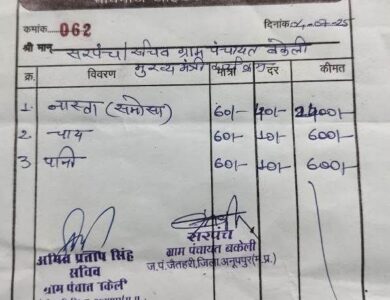 क्रमांक 062 दिनांक 04-07-25
श्री मान् सरपंच/सचिव ग्राम पंचायत बकेली
मुख्यमंत्री कार्यक्रम
क्र. विवरण मात्रा दर कीमत
1. नास्ता (समोसा) 60/- 40/- 2400/-
2 चाय 60/- 10/- 600/-
3 पानी 60/- 10/- 600/-
अमित प्रताप सिंह
सचिव
ग्राम पंचायत बकेली
सरपंच
ग्राम पंचायत बकेली
ज.पं.जैतहरी,जिला.अनूपपुर(म.प्र.)